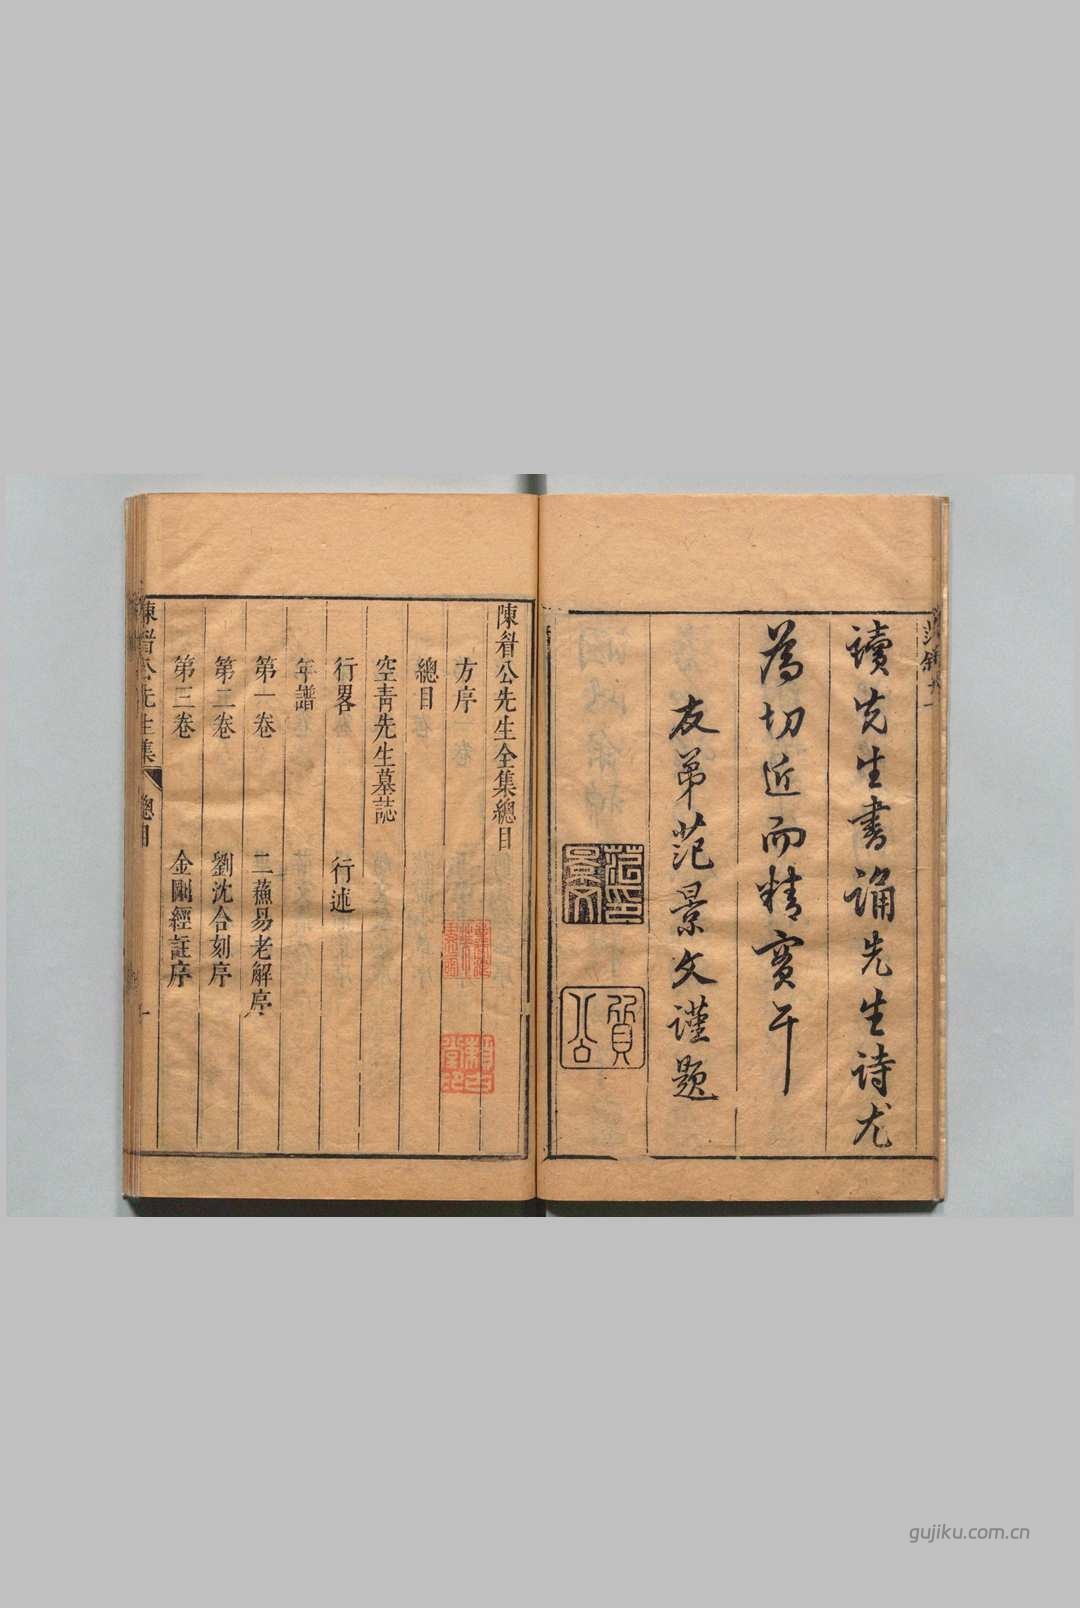 讀先生書誦先生詩尤
為切近而精實耳
友弟范景文謹題
范景文印
質公
陳眘公先生全集總目
方序
總目
空青先生墓誌
行畧 行述
年譜
第一卷 二蘓易老解序
第二卷 劉沈合刻序
第三卷 金剛經註序
陳眘公先生集 總目 一
gujiku.com.cn